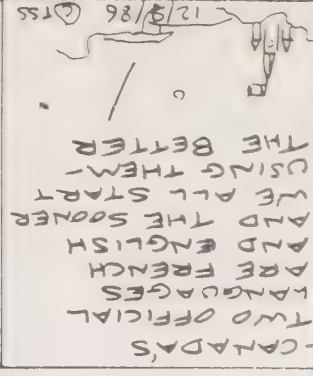 -CANADA'S
TWO OFFICIAL
LANGUAGES
ARE FRENCH
AND ENGLISH
AND THE SOONER
WE ALL START
USING THEM-
THE BETTER
12/9/86